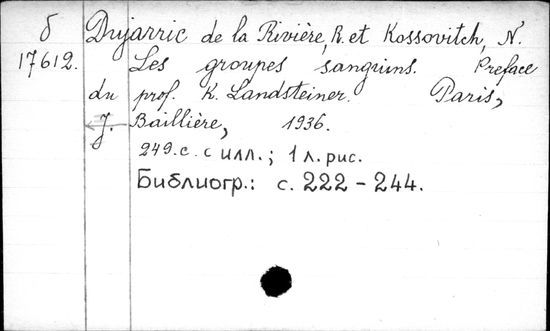 б Dujarric de la Rivière, R. et Kossovitch, N.
17612. Les groupes sanguins. Preface
du prof. K. Landsteiner. Paris,
J. Baillière, 1936.
249.с. с илл.; 1 л. рис.
Библиогр.: с. 222 - 244.